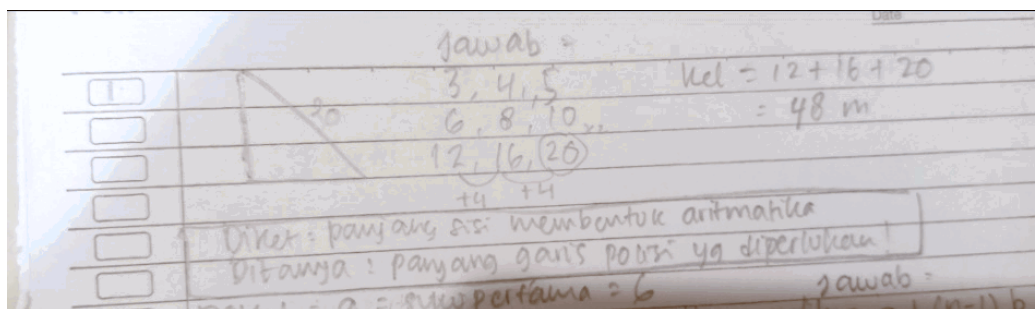 Date
Jawab =
1
3, 4, 5
20
6, 8, 10
12, 16, 20
+4 +4
kel = 12 + 16 + 20
= 48 m
Diket : panjang sisi membentuk aritmatika
Ditanya : panjang garis polisi yg diperlukan!
suku pertama = 6
Jawab =